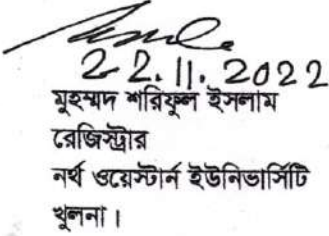 22.11.2022
মুহম্মদ শরিফুল ইসলাম
রেজিস্ট্রার
নর্থ ওয়েস্টার্ন ইউনিভার্সিটি
খুলনা।